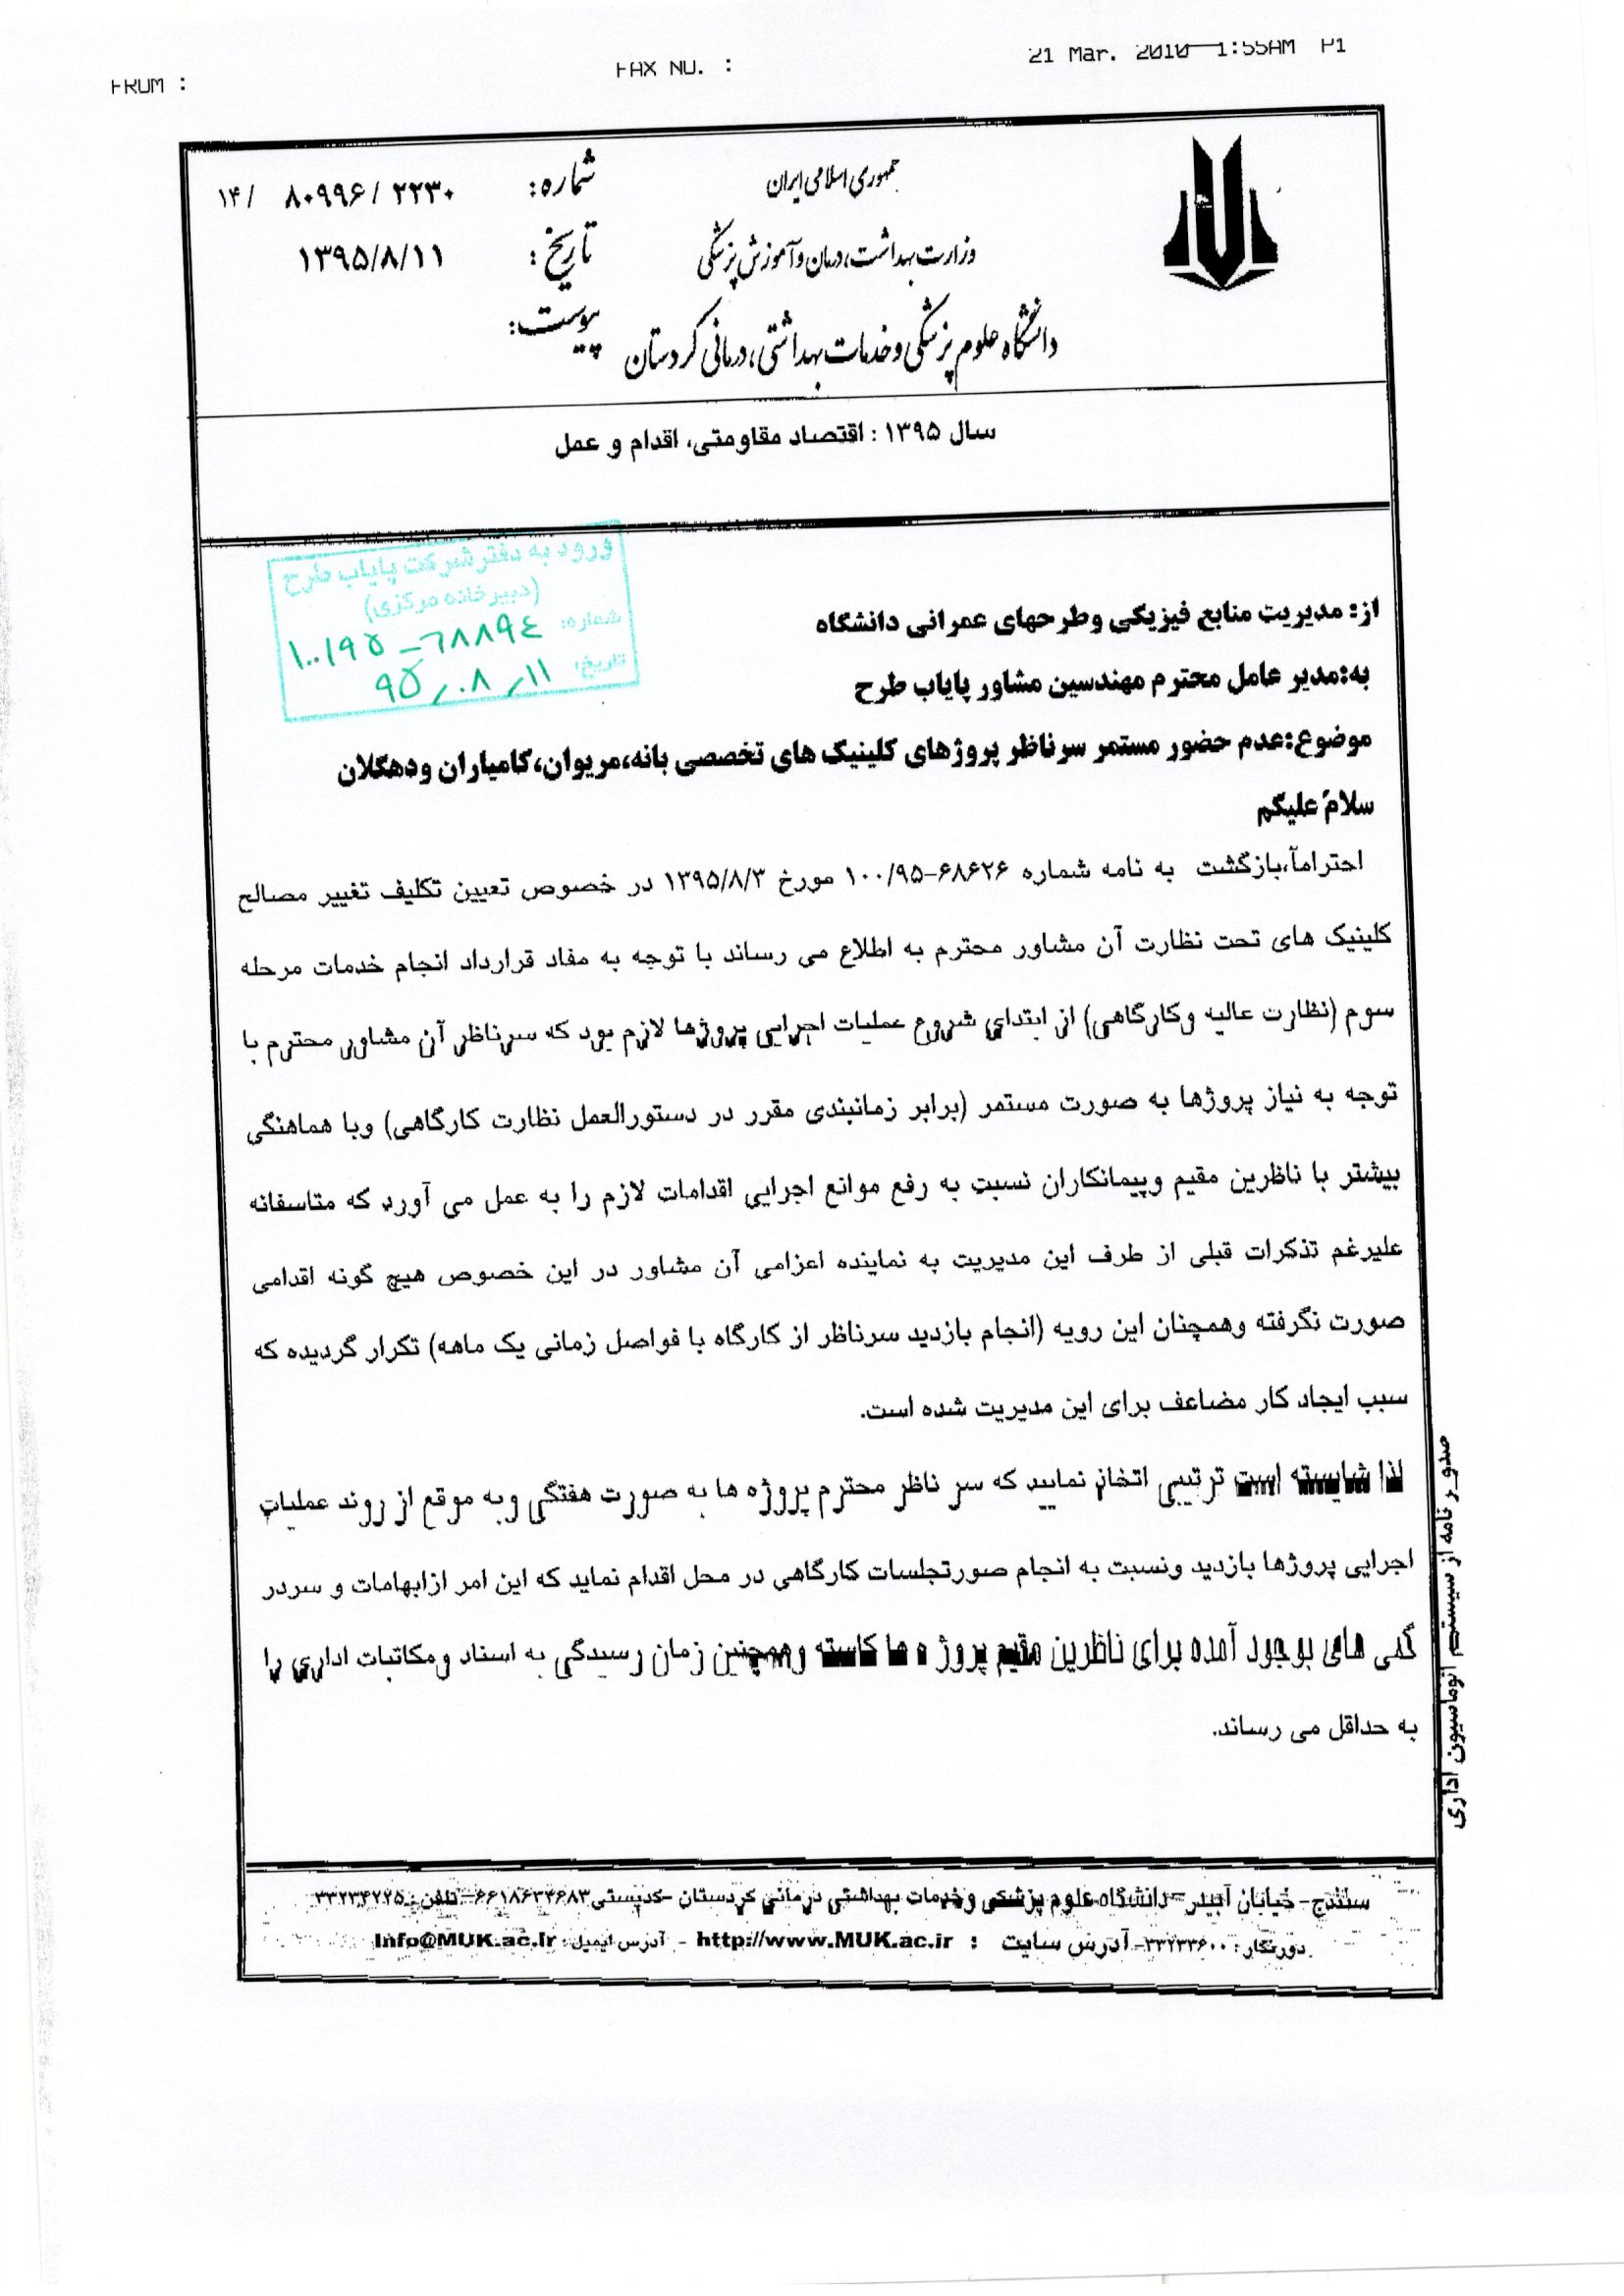 FROM :
FAX NO. :
21 Mar. 2010 1:55AM P1
جمهوری اسلامی ایران
وزارت بهداشت، درمان و آموزش پزشکی
دانشگاه علوم پزشکی و خدمات بهداشتی، درمانی کردستان
شماره: ۱۴/ ۸۰۹۹۶/ ۲۲۳۰
تاریخ: ۱۳۹۵/۸/۱۱
پیوست:
سال ۱۳۹۵ : اقتصاد مقاومتی، اقدام و عمل
ورود به دفتر شرکت پایاب طرح
(دبیرخانه مرکزی)
شماره: ۱۰۰/۹۵ - ۶۸۸۹۴
تاریخ: ۹۵/۰۸/۱۱
از: مدیریت منابع فیزیکی وطرحهای عمرانی دانشگاه
به:مدیر عامل محترم مهندسین مشاور پایاب طرح
موضوع:عدم حضور مستمر سرناظر پروژهای کلینیک های تخصصی بانه،مریوان،کامیاران ودهگلان
سلام علیکم
احتراماً،بازگشت به نامه شماره ۶۸۶۲۶-۱۰۰/۹۵ مورخ ۱۳۹۵/۸/۳ در خصوص تعیین تکلیف تغییر مصالح
کلینیک های تحت نظارت آن مشاور محترم به اطلاع می رساند با توجه به مفاد قرارداد انجام خدمات مرحله
سوم (نظارت عالیه وکارگاهی) از ابتدای شروع عملیات اجرایی پروژها لازم بود که سرناظر آن مشاور محترم با
توجه به نیاز پروژها به صورت مستمر (برابر زمانبندی مقرر در دستورالعمل نظارت کارگاهی) وبا هماهنگی
بیشتر با ناظرین مقیم وپیمانکاران نسبت به رفع موانع اجرایی اقدامات لازم را به عمل می آورد که متاسفانه
علیرغم تذکرات قبلی از طرف این مدیریت به نماینده اعزامی آن مشاور در این خصوص هیچ گونه اقدامی
صورت نگرفته وهمچنان این رویه (انجام بازدید سرناظر از کارگاه با فواصل زمانی یک ماهه) تکرار گردیده که
سبب ایجاد کار مضاعف برای این مدیریت شده است.
لذا شایسته است ترتیبی اتخاذ نمایید که سر ناظر محترم پروژه ها به صورت هفتگی وبه موقع از روند عملیات
اجرایی پروژها بازدید ونسبت به انجام صورتجلسات کارگاهی در محل اقدام نماید که این امر ازابهامات و سردر
گمی های بوجود آمده برای ناظرین مقیم پروژه ها کاسته وهمچنین زمان رسیدگی به اسناد ومکاتبات اداری را
به حداقل می رساند.
صدور نامه از سیستم اتوماسیون اداری
سنندج- خیابان آبیدر -دانشگاه علوم پزشکی و خدمات بهداشتی درمانی کردستان -کدپستی۶۶۱۸۶۳۴۶۸۳- تلفن : ۳۳۲۳۴۲۲۵
دورنگار : ۳۳۲۳۳۶۰۰- آدرس سایت : http://www.MUK.ac.ir - آدرس ایمیل : Info@MUK.ac.ir